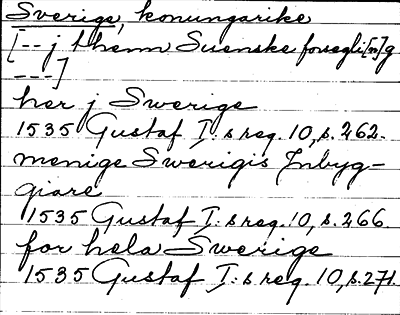 Sverige, konungarike
[-- j thenn Suenske forsegli[n]g
---]
her j Swerige
1535 Gustaf I:s reg. 10, s. 262.
menige Swerigis Jnbyg-
giare
1535 Gustaf I:s reg. 10, s. 266.
for hela Swerige
1535 Gustaf I:s reg. 10, s. 271.